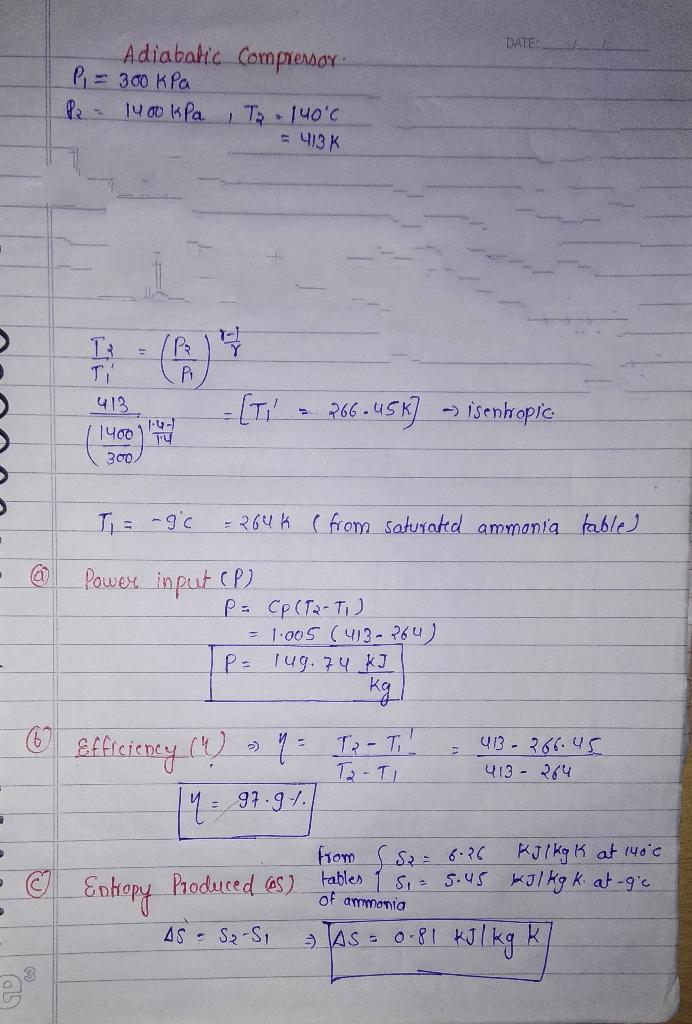 DATE:
Adiabatic Compressor.
P₁ = 300 KPa
P₂ = 1400 KPa , T₂ = 140°C
= 413 K
T₂/T₁' = (P₂/P₁)^(γ-1/γ)
413/(1400/300)^(1.4-1/1.4) = [T₁' = 266.45K] → isentropic
T₁ = -9°C = 264 K (from saturated ammonia table)
(a) Power input (P)
P = Cp(T₂-T₁)
= 1.005 (413-264)
P = 149.74 KJ/Kg
(b) Efficiency (η) ⇒ η = T₂-T₁'/T₂-T₁ = 413-266.45/413-264
η = 97.9 %.
from { S₂ = 6.26 KJ/kg K at 140°C
(c) Entropy Produced (ΔS) tables { S₁ = 5.45 KJ/kg K. at -9°C
of ammonia
ΔS = S₂-S₁ ⇒ ΔS = 0.81 KJ/kg K
e³